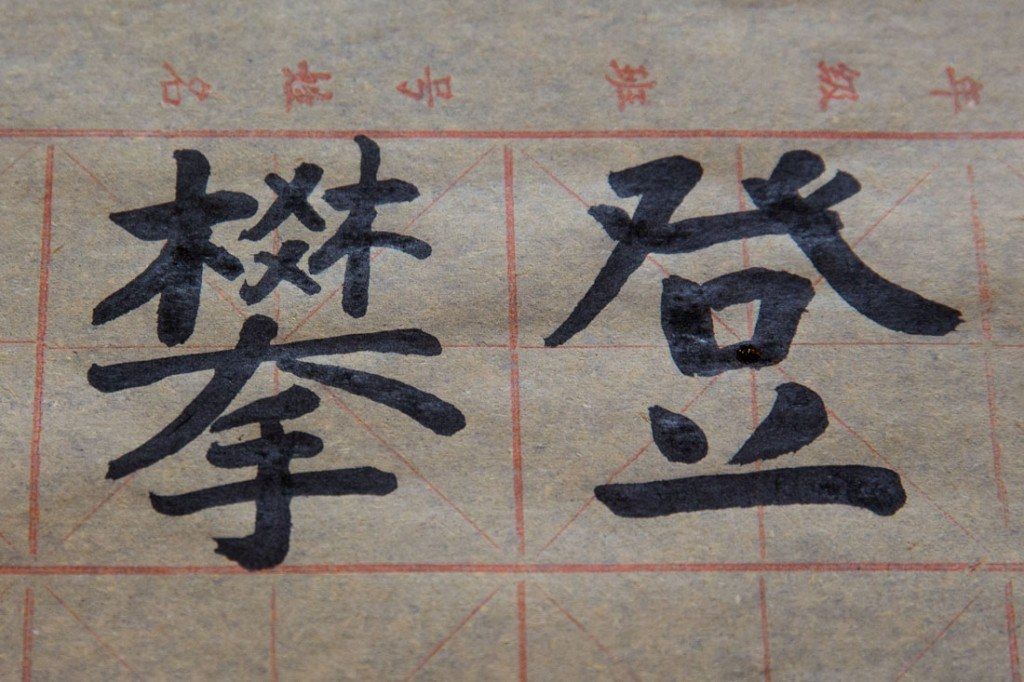 年级班号姓名
攀登